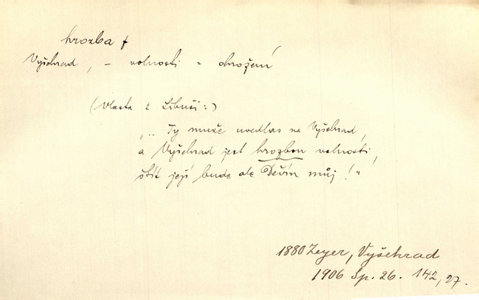 hrozba f
Vyšehrad, – volnosti = ohrožení
(Vlasta k Libuši:)
"... Ty muže uvedlas na Vyšehrad,
a Vyšehrad jest hrozbou volnosti,
štít její bude ale Děvín můj!"
1880 Zeyer, Vyšehrad
1906 Sp. 26. 142, 27.